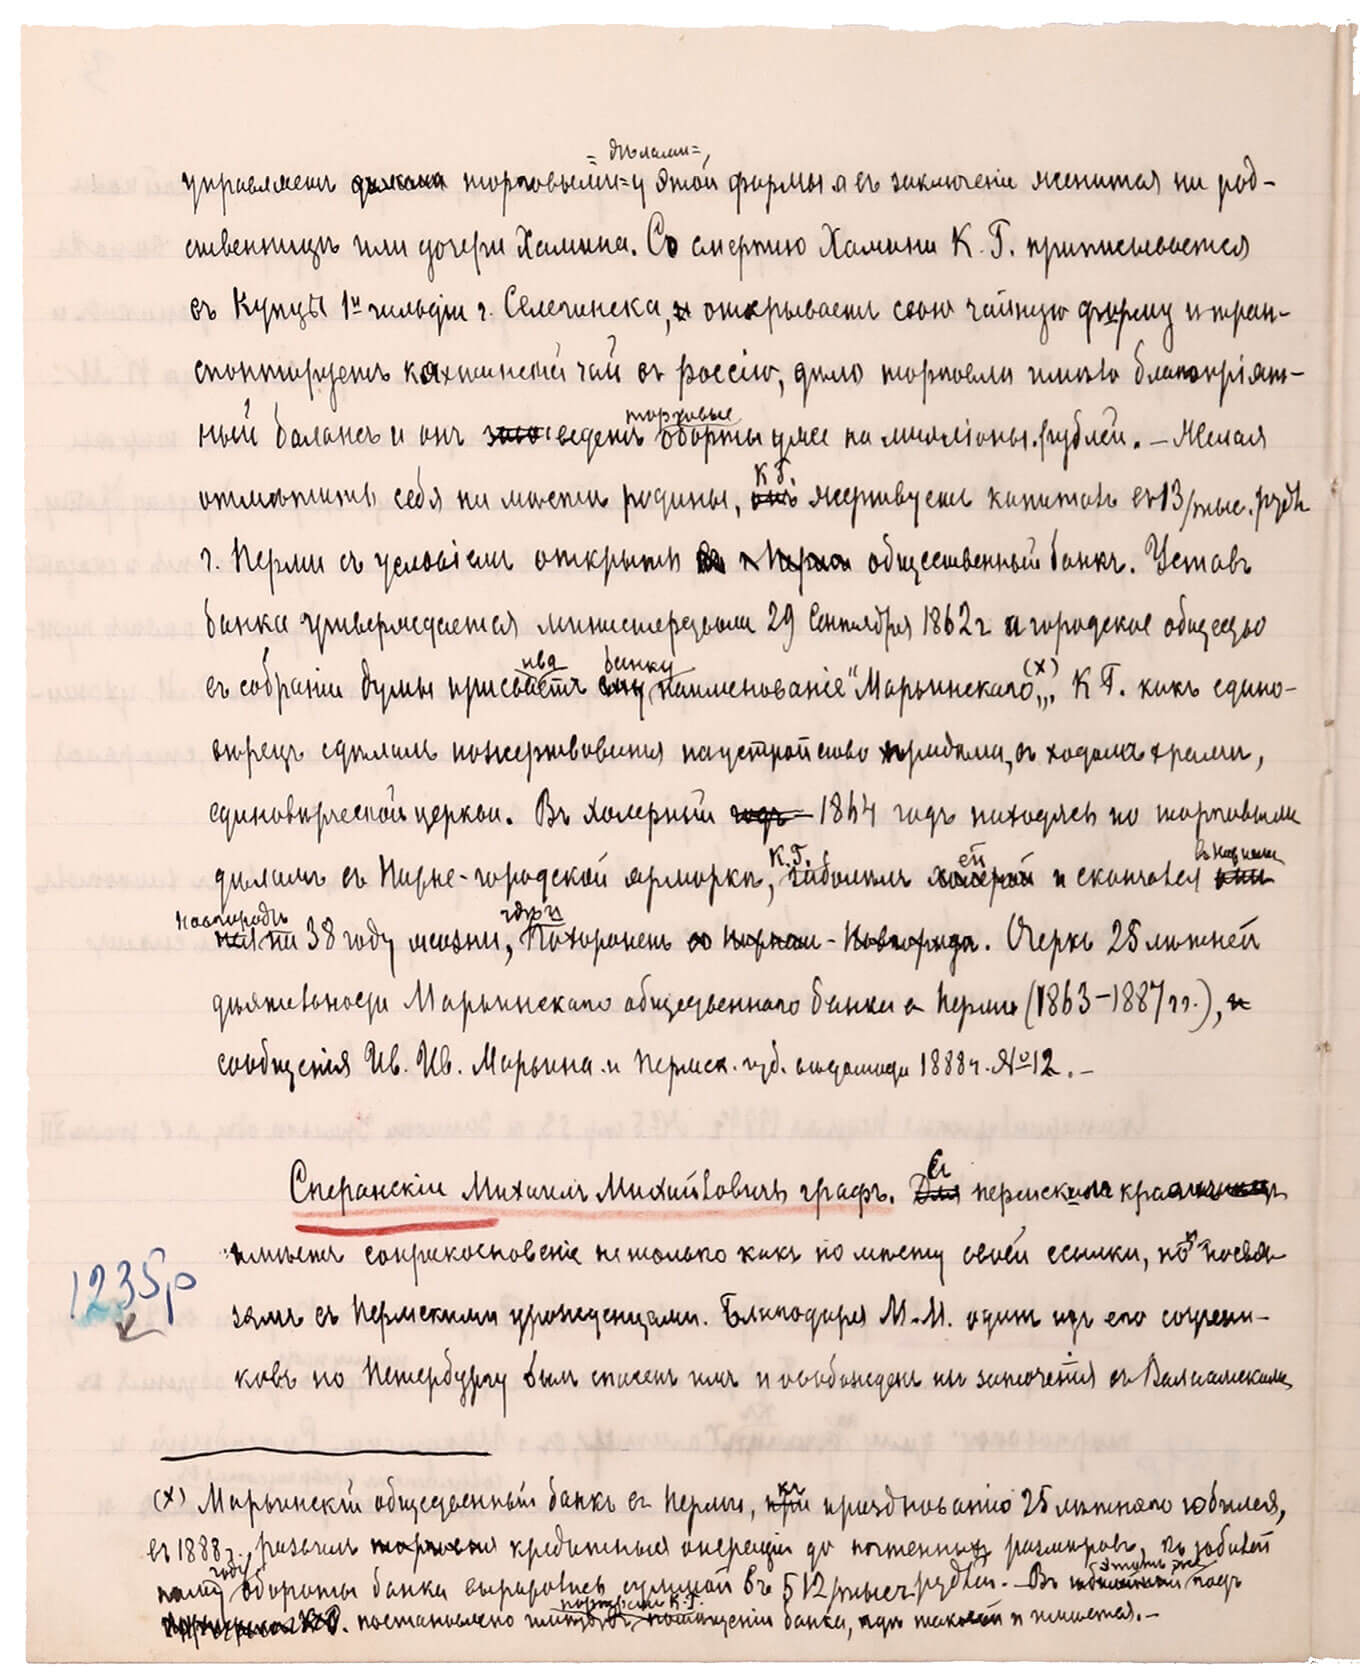 =дѣлами=,
управляетъ торговыми=у этой фирмы а въ заключеніе женится на род-
ственницѣ или дочери Хамина. Со смертію Хамина К. Г. приписывается
въ Купцы 1й гильдіи г. Селегинска, и открываетъ свою чайную фирму и тран-
спортируетъ кяхтинскій чай въ россію, дѣло торговли имѣло благопріят-
торговые
ный балансъ и онъ ведетъ обороты уже на милліоны рублей. – Желая
К Г.
отмѣтить себя на мѣстѣ родины, жертвуетъ капиталъ въ 13/тыс. рубл.
г. Перми съ условіемъ открыть общественный банкъ. Уставъ
банка утверждается министерствомъ 29 Сентября 1862 г. а городское общество
ива банку (х)
въ собраніи думы присваетъ наименованіе "Марьинскаго„. К Г. какъ едино-
вѣрецъ сдѣлалъ пожертвованія на устройство придѣла, въ ходомъ храмѣ,
единовѣрческой церкви. Въ холерный 1864 годъ находясь по торговымъ
К. Г. ей въ Нижнемъ
дѣламъ въ Ниже-городской ярмаркѣ, заболѣлъ и скончался
Новгородѣ гдѣ и
на 38 году жизни, Похороненъ. Очеркъ 25 лѣтней
дѣятельности Марьинскаго общественнаго банка въ Перми (1863–1887 гг.), и
сообщенія Ив. Ив. Марьина и Пермск. губ. вѣдомости 1888 г. № 12. –
Съ
Сперанскій Михаилъ Михайловичъ графъ. пермскимъ краемъ
имѣетъ соприкосновеніе не только какъ по мѣсту своей ссылки, но и по свя-
1235р
замъ съ Пермскими урожденцами. Благодаря М. М. одинъ изъ его соучени-
ковъ по Петербургу былъ спасенъ имъ и освобожденъ изъ заточенія въ Валаамскомъ
(х) Марьинскій общественный банкъ въ Перми, къ празднованію 25 лѣтняго юбилея,
въ 1888 г., развилъ кредитныя операціи до почтенныхъ размѣровъ,
году этомъ же
обороты банка выразились суммой въ 512/тыс. рублей. – Въ году
портретъ К. Г.
постановлено имѣть въ помѣщеніи банка, гдѣ таковой и имѣется. –